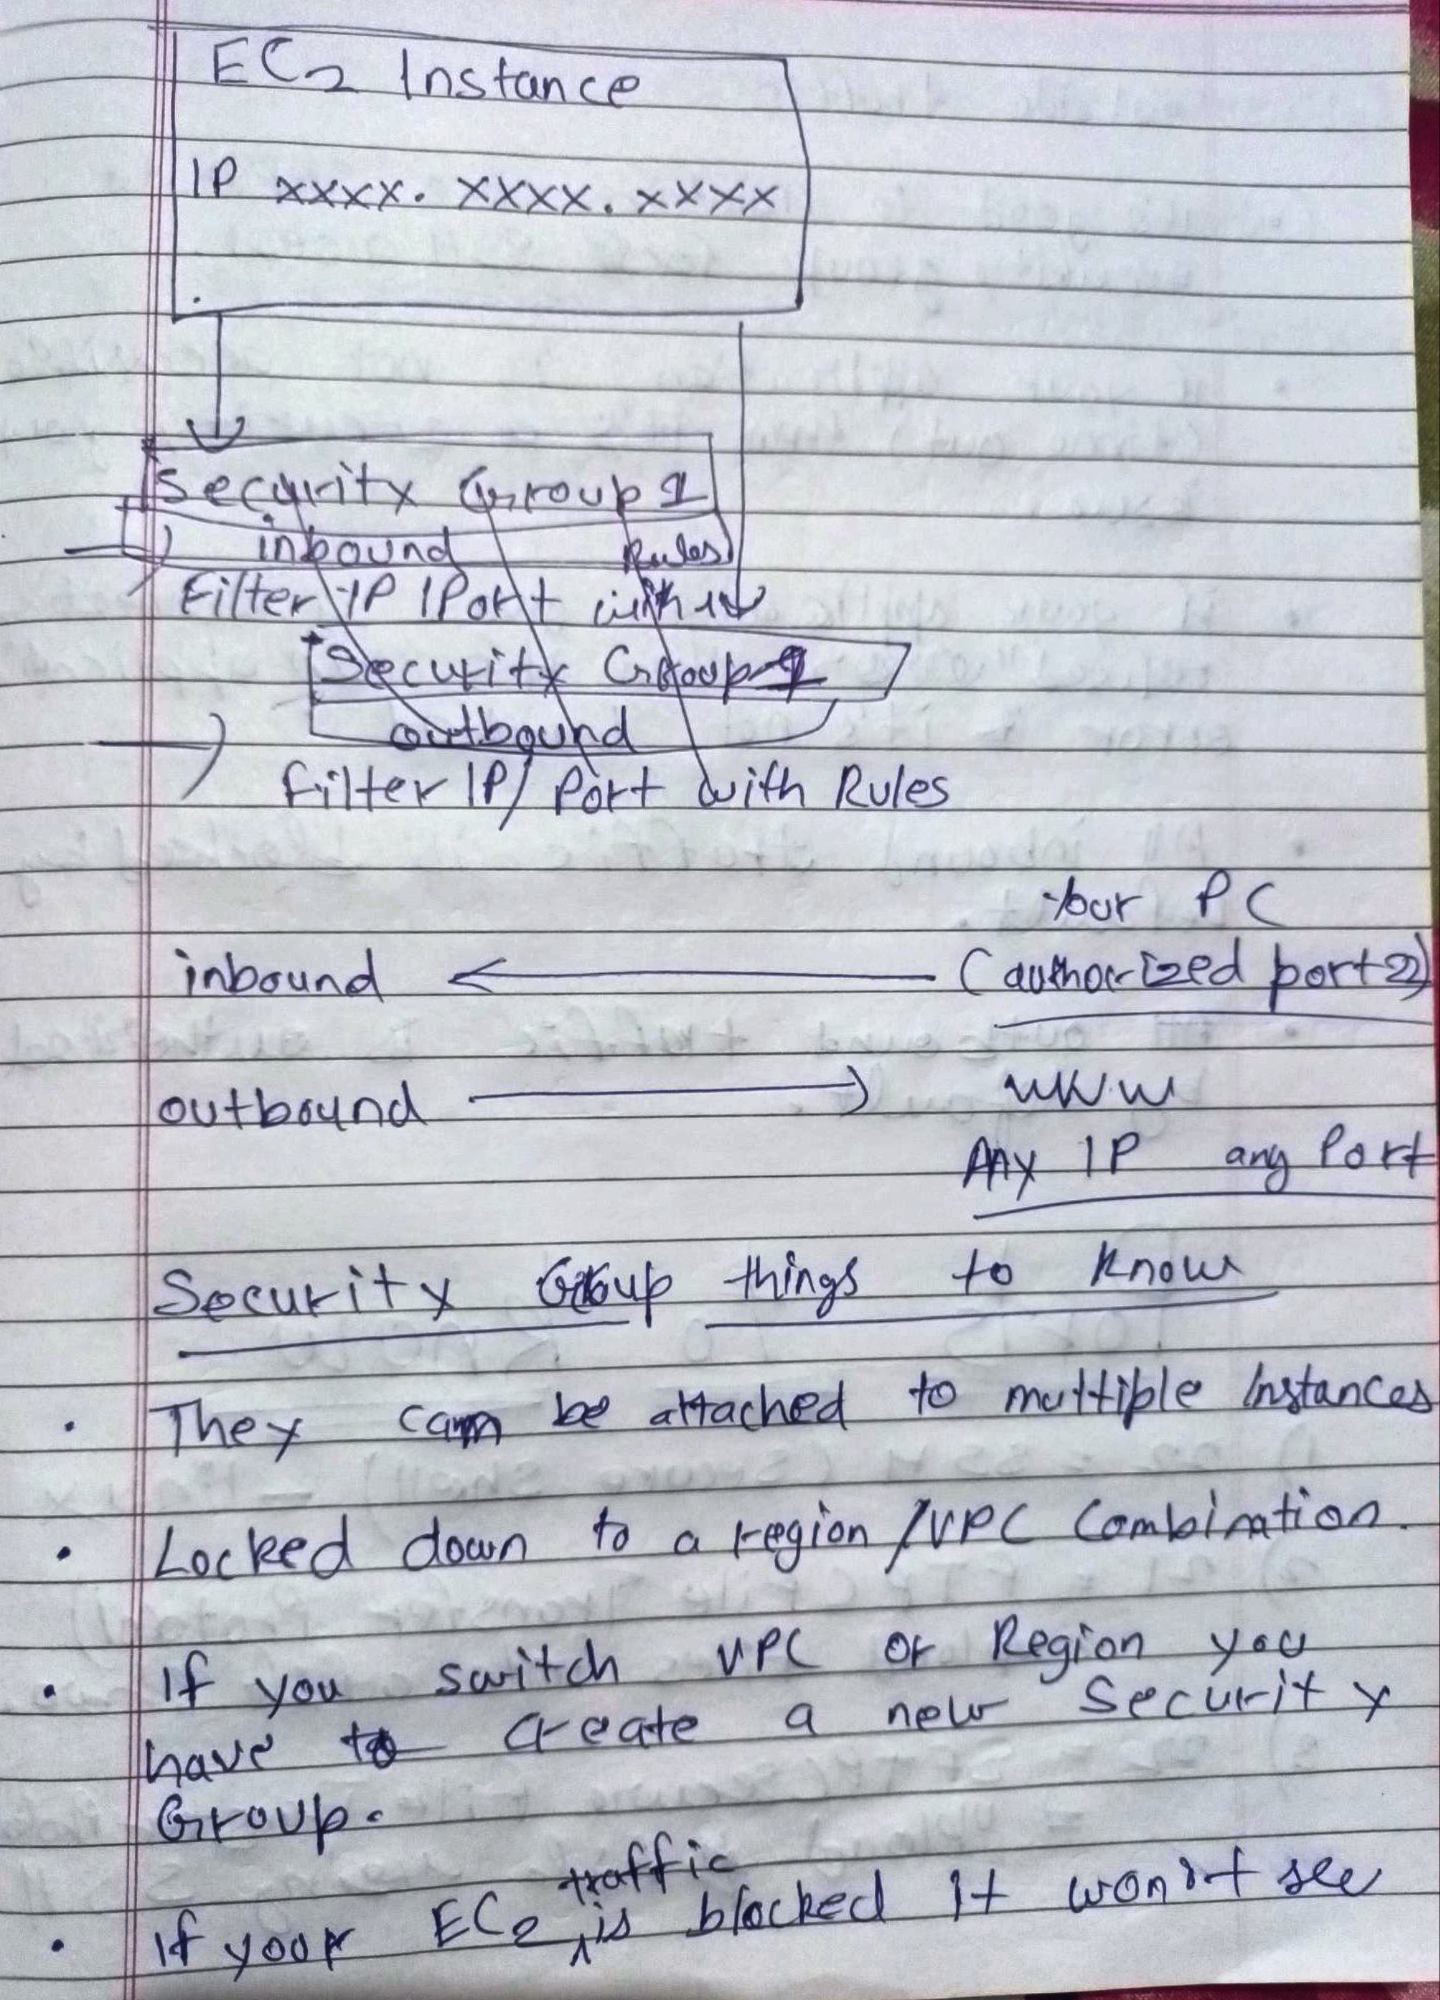 EC2 Instance
IP xxxx. xxxx. xxxx
Security Group 1
inbound Rules
Filter IP / Port with
Security Group 1
outbound
Filter IP/ Port with Rules
Your PC
inbound (authorized port 22)
outbound WWW
Any IP any Port
Security Group things to know
• They can be attached to multiple Instances
• Locked down to a region /VPC Combination.
• If you switch VPC or Region you
have to create a new Security
Group.
traffic
• If your EC2 ^ is blocked It won't see